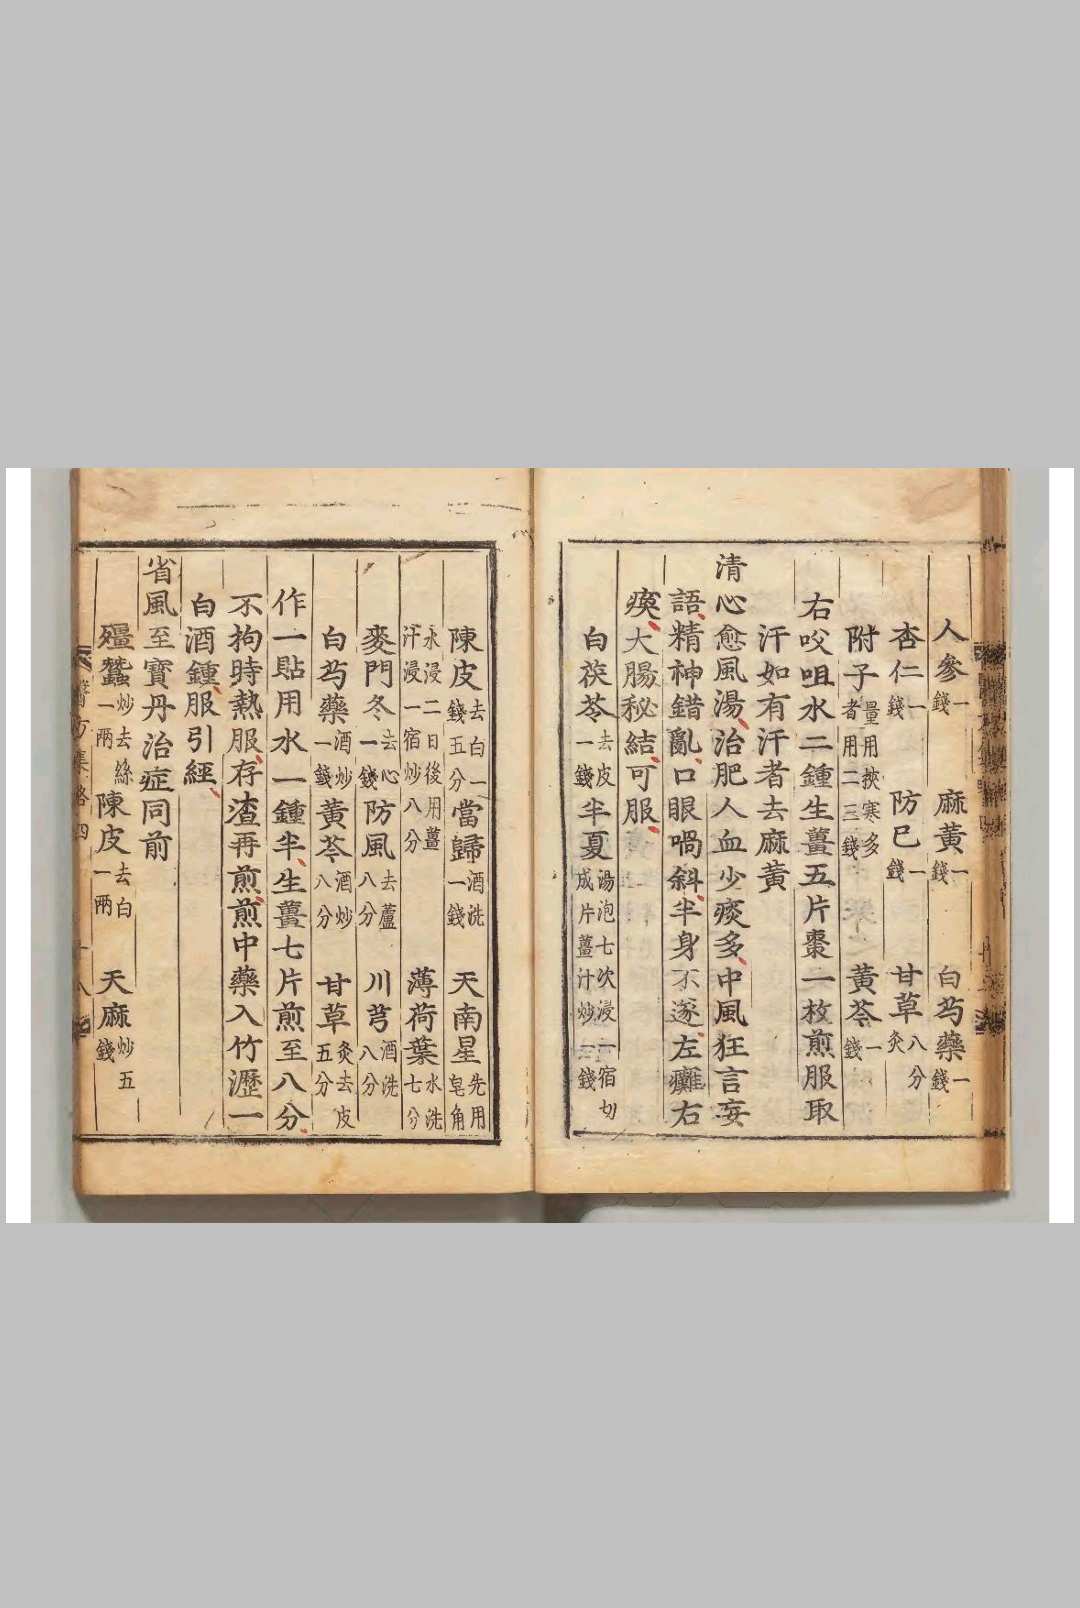 人參一錢 麻黃一錢 白芍藥一錢
杏仁一錢 防已一錢 甘草八分炙
附子量用挾寒多者用二三錢 黃芩一錢
右㕮咀水二鍾生薑五片棗一枚煎服取
汗如有汗者去麻黃
清心愈風湯治肥人血少痰多中風狂言妄
語精神錯亂口眼喎斜半身不遂左癱右
瘓大腸秘結可服
白茯苓去皮一錢半夏湯泡七次浸一宿切成片薑汁炒一錢
陳皮去白一錢五分當歸酒洗一錢 天南星先用皂角
水浸二日後用薑汁浸一宿炒八分 薄荷葉水洗七分
麥門冬去心一錢防風去蘆八分 川芎酒洗八分
白芍藥酒炒一錢黃芩酒炒八分 甘草炙去皮五分
作一貼用水一鍾半生薑七片煎至八分
不拘時熱服存渣再煎煎中藥入竹瀝一
白酒鍾服引經
省風至寶丹治症同前
殭蠶炒去絲一兩陳皮去白一兩 天麻炒五錢
醫方集略四 十八